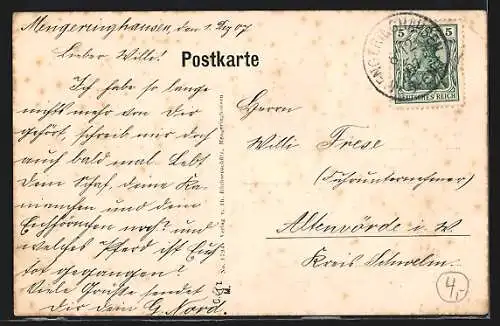 Mengeringhausen, den 1. Dez 07
Lieber Willi!
Postkarte
Ich habe so lange
nichts mehr von Dir
gehört, schreib mir doch
auch bald mal. Lebt
Dein Schaf, deine Ka-
ninchen und dein
Eichhörnchen noch? und
welches Pferd ist Euch
tot gegangen?
Viele Grüße sendet
Dir dein G. Nord.
MENGERINGHAUSEN
5 5
DEUTSCHES REICH
Herrn
Willi Frese
(Fuhrunternehmer)
Altenvörde i. W.
Kreis Schwelm.
4,-